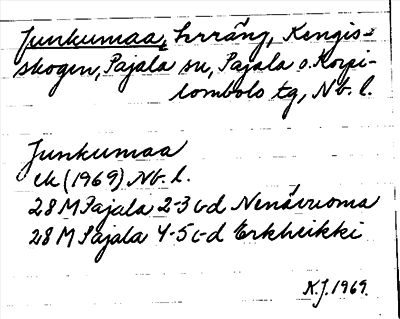 Junkumaa, hrräng, Kengis-
skogen, Pajala sn, Pajala o. Korpi-
lombolo tg, Nb. l.
Junkumaa
ek (1969) Nb. l.
28 M Pajala 2-3 c-d Nenävuoma
28 M Pajala 4-5 c-d Erkheikki
K.J. 1969.